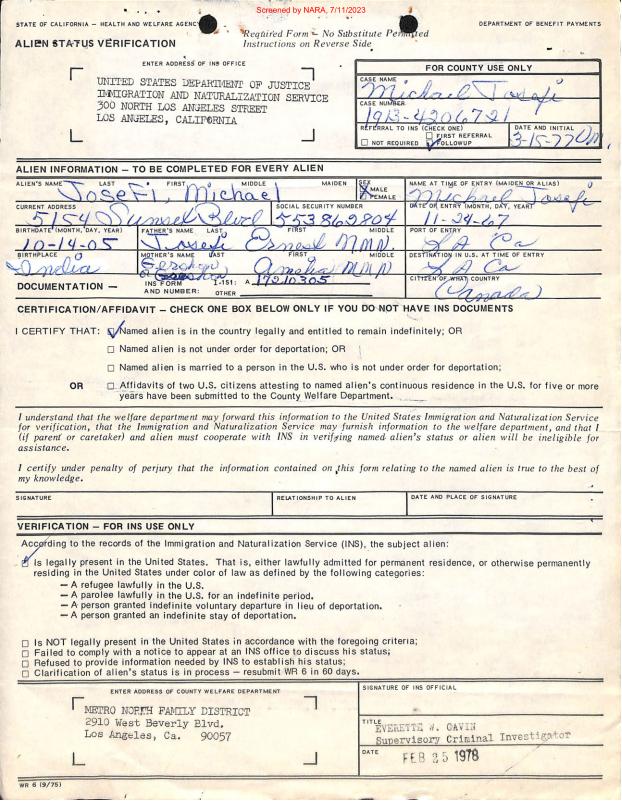 Screened by NARA, 7/11/2023
STATE OF CALIFORNIA – HEALTH AND WELFARE AGENCY
DEPARTMENT OF BENEFIT PAYMENTS
ALIEN STATUS VERIFICATION
Required Form – No Substitute Permitted
Instructions on Reverse Side
ENTER ADDRESS OF INS OFFICE
UNITED STATES DEPARTMENT OF JUSTICE
IMMIGRATION AND NATURALIZATION SERVICE
300 NORTH LOS ANGELES STREET
LOS ANGELES, CALIFORNIA
FOR COUNTY USE ONLY
CASE NAME
Michael Josefi
CASE NUMBER
1913-4206721
REFERRAL TO INS (CHECK ONE)
☐ FIRST REFERRAL
☐ NOT REQUIRED ☑ FOLLOWUP
DATE AND INITIAL
3-15-77
ALIEN INFORMATION – TO BE COMPLETED FOR EVERY ALIEN
ALIEN'S NAME LAST FIRST MIDDLE MAIDEN
Josefi, Michael
SEX
MALE
FEMALE
NAME AT TIME OF ENTRY (MAIDEN OR ALIAS)
Michael Josefi
CURRENT ADDRESS
5154 Sunset Blvd
SOCIAL SECURITY NUMBER
553862804
DATE OF ENTRY (MONTH, DAY, YEAR)
11-24-67
BIRTHDATE (MONTH, DAY, YEAR)
10-14-05
FATHER'S NAME LAST FIRST MIDDLE
Josefi Ernest NMN
PORT OF ENTRY
LA Ca
BIRTHPLACE
India
MOTHER'S NAME LAST FIRST MIDDLE
Amelia NMN
DESTINATION IN U.S. AT TIME OF ENTRY
LA Ca
DOCUMENTATION – INS FORM AND NUMBER: I-151: A 17210305
OTHER
CITIZEN OF WHAT COUNTRY
Canada
CERTIFICATION/AFFIDAVIT – CHECK ONE BOX BELOW ONLY IF YOU DO NOT HAVE INS DOCUMENTS
I CERTIFY THAT: ☑ Named alien is in the country legally and entitled to remain indefinitely; OR
☐ Named alien is not under order for deportation; OR
☐ Named alien is married to a person in the U.S. who is not under order for deportation;
OR ☐ Affidavits of two U.S. citizens attesting to named alien's continuous residence in the U.S. for five or more
years have been submitted to the County Welfare Department.
I understand that the welfare department may forward this information to the United States Immigration and Naturalization Service
for verification, that the Immigration and Naturalization Service may furnish information to the welfare department, and that I
(if parent or caretaker) and alien must cooperate with INS in verifying named alien's status or alien will be ineligible for
assistance.
I certify under penalty of perjury that the information contained on this form relating to the named alien is true to the best of
my knowledge.
SIGNATURE
RELATIONSHIP TO ALIEN
DATE AND PLACE OF SIGNATURE
VERIFICATION – FOR INS USE ONLY
According to the records of the Immigration and Naturalization Service (INS), the subject alien:
☑ Is legally present in the United States. That is, either lawfully admitted for permanent residence, or otherwise permanently
residing in the United States under color of law as defined by the following categories:
– A refugee lawfully in the U.S.
– A parolee lawfully in the U.S. for an indefinite period.
– A person granted indefinite voluntary departure in lieu of deportation.
– A person granted an indefinite stay of deportation.
☐ Is NOT legally present in the United States in accordance with the foregoing criteria;
☐ Failed to comply with a notice to appear at an INS office to discuss his status;
☐ Refused to provide information needed by INS to establish his status;
☐ Clarification of alien's status is in process – resubmit WR 6 in 60 days.
ENTER ADDRESS OF COUNTY WELFARE DEPARTMENT
METRO NORTH FAMILY DISTRICT
2910 West Beverly Blvd.
Los Angeles, Ca. 90057
SIGNATURE OF INS OFFICIAL
TITLE
EVERETTE W. GAVIN
Supervisory Criminal Investigator
DATE
FEB 25 1978
WR 6 (9/75)